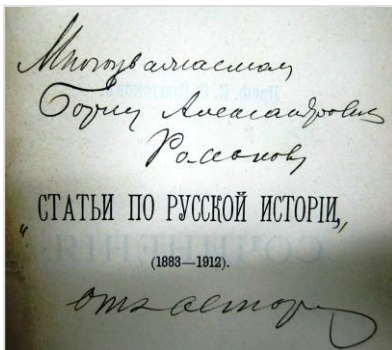 Многоуважаемому
Борису Александровичу
Романову
„СТАТЬИ ПО РУССКОЙ ИСТОРІИ„
(1883—1912).
отъ автора